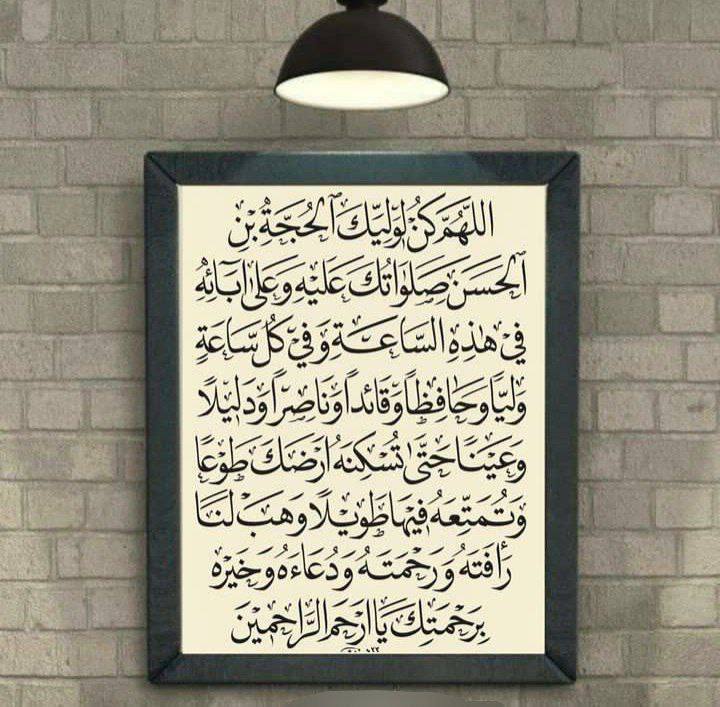 اللّهُمَّ كُنْ لِوَلِيِّكَ ٱلْحُجَّةِ بْنِ
ٱلْحَسَنِ صَلَوٰاتُكَ عَلَيْهِ وَعَلىٰ اٰبَآئِهِ
فِي هٰذِهِ السَّاعَةِ وَفِي كُلِّ سَاعَةٍ
وَلِيّاً وَحَافِظاً وَقَائِداً وَنَاصِراً وَدَلِيلًا
وَعَيْناً حَتّىٰ تُسْكِنَهُ اَرْضَكَ طَوْعاً
وَتُمَتِّعَهُ فِيهَا طَوِيلًا وَهَبْ لَنَا
رَأْفَتَهُ وَرَحْمَتَهُ وَدُعَاءَهُ وَخَيْرَهُ
بِرَحْمَتِكَ يَا اَرْحَمَ الرَّاحِمِينَ